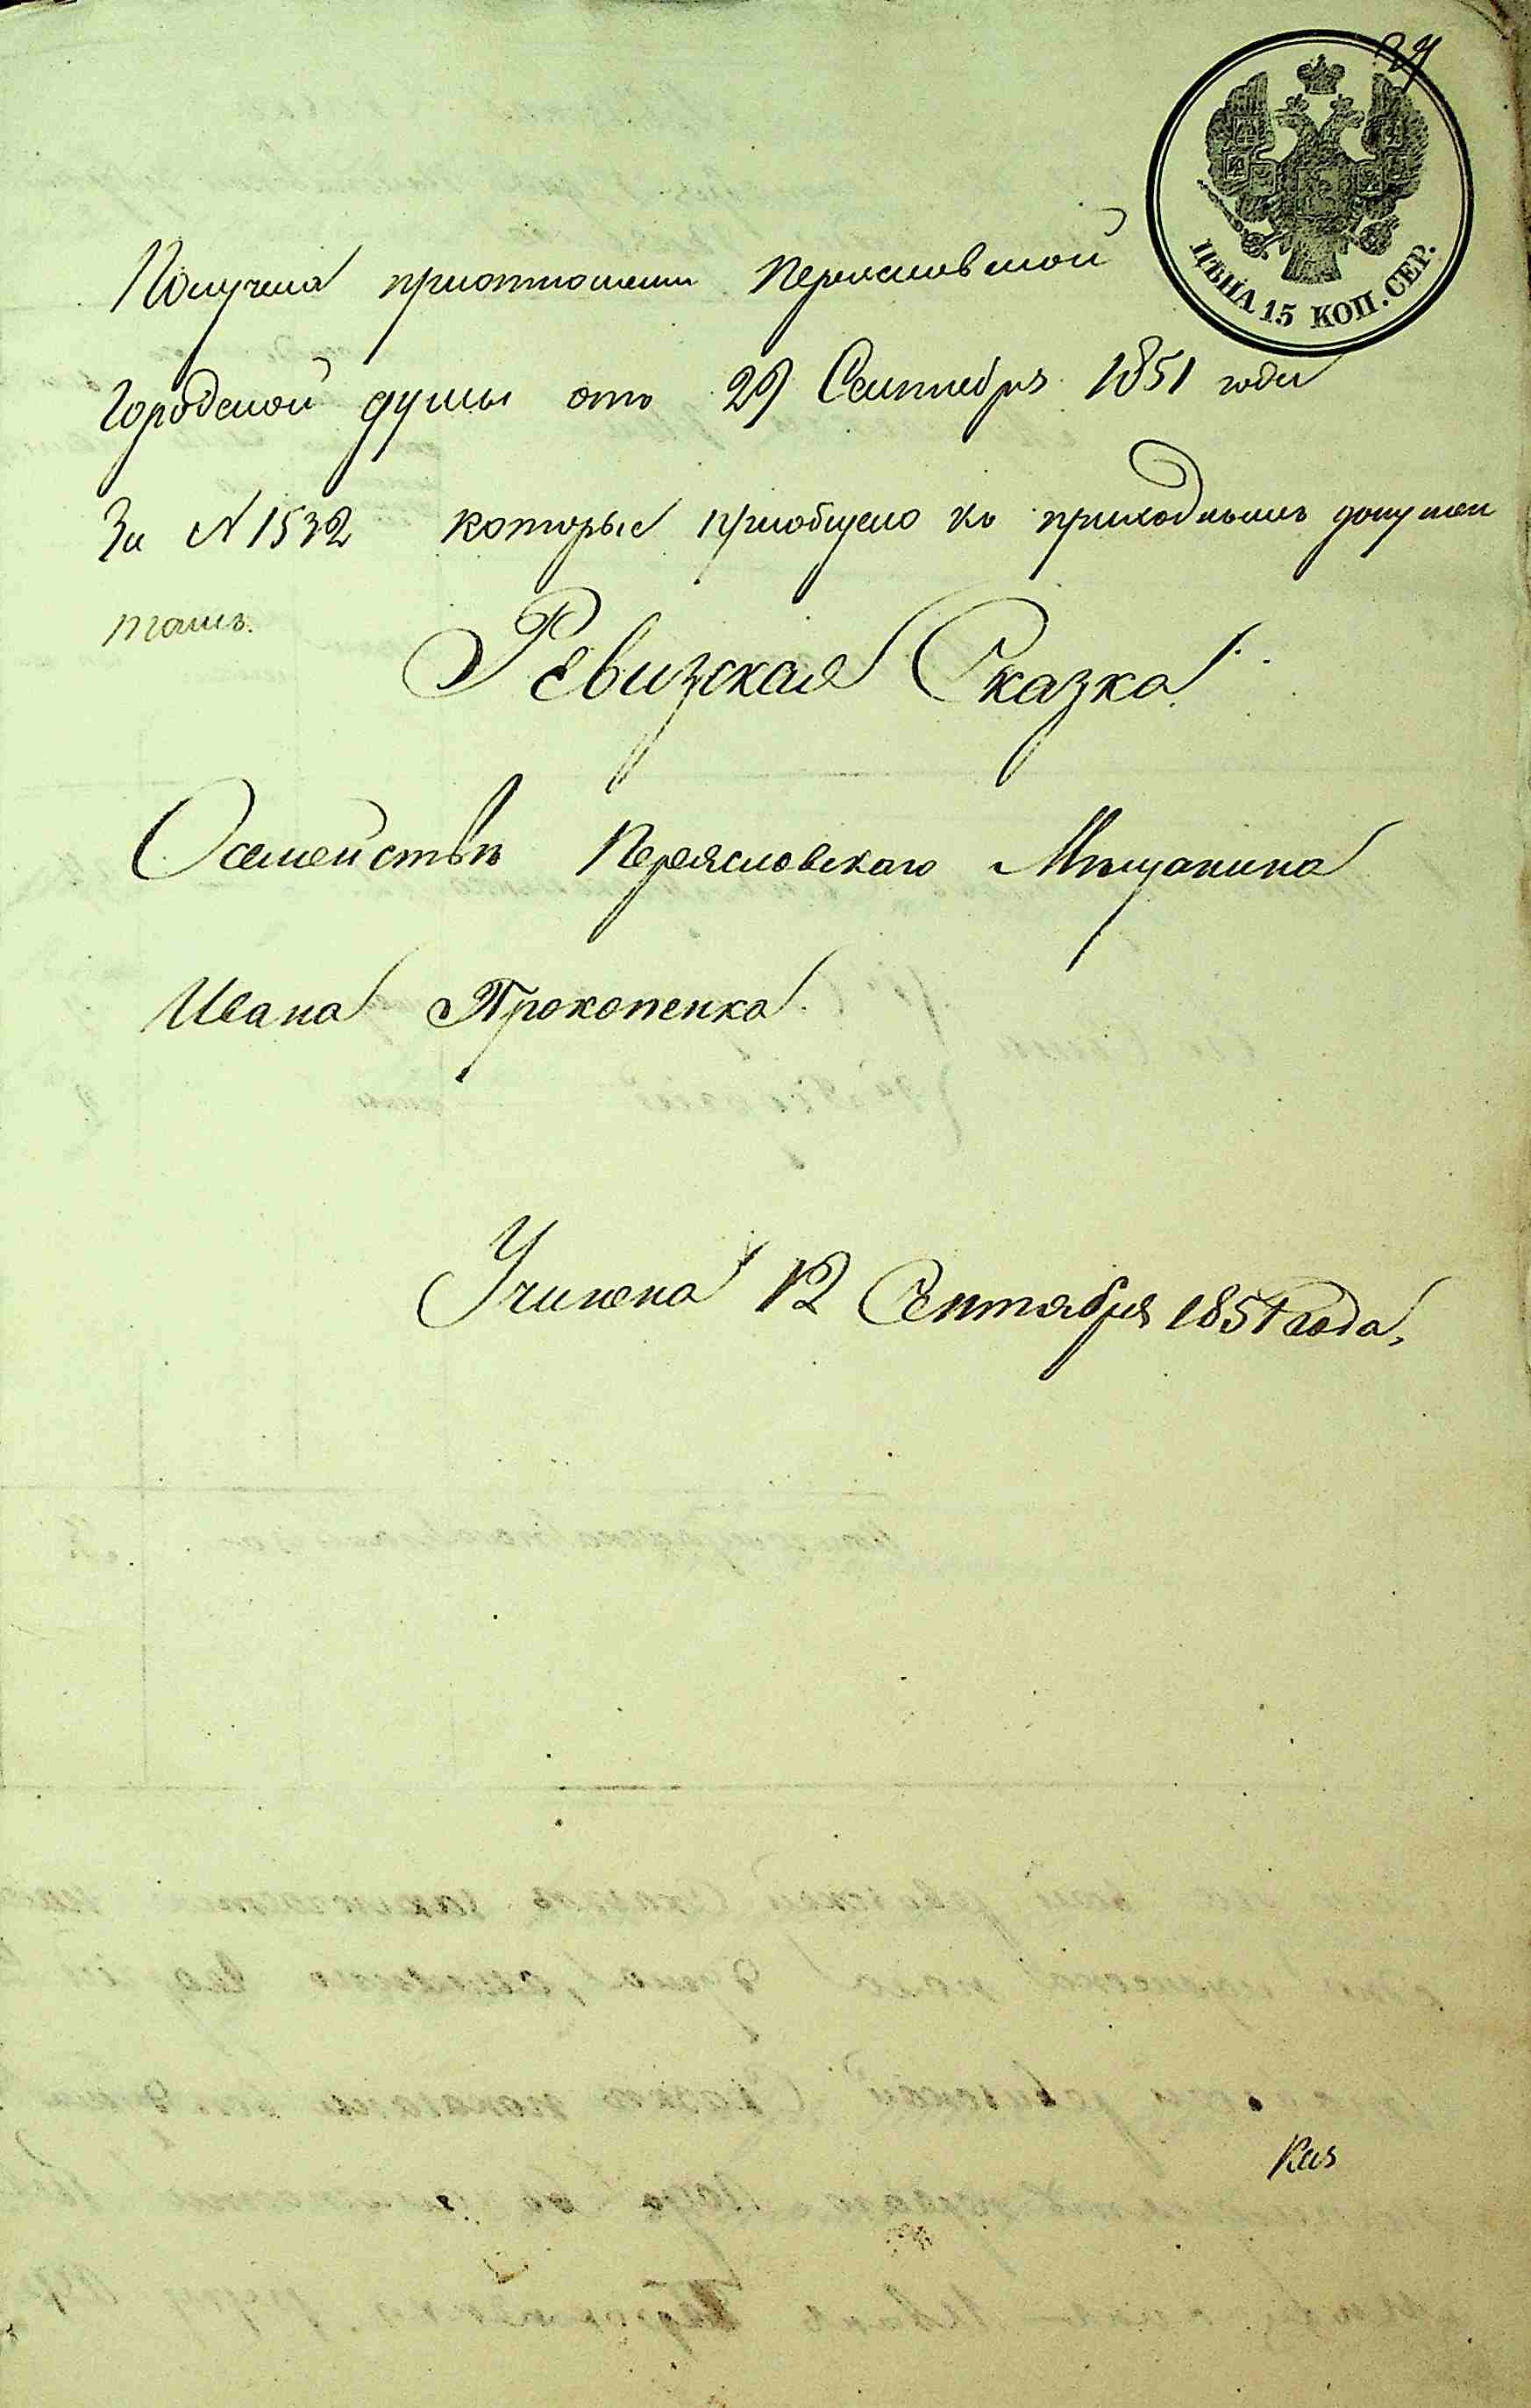 29
ЦѢНА 15 КОП. СЕР.
Получена приотношении Переяславской
Городской думы отъ 29 Сентября 1851 года
За N 1532 которые приобщено къ приходнымъ докумен
тамъ.
Ревизская Сказка
Осемействѣ Переясловскаго Мѣщанина
Ивана Прокопенка
Учинена 12 Сентября 1851 года,